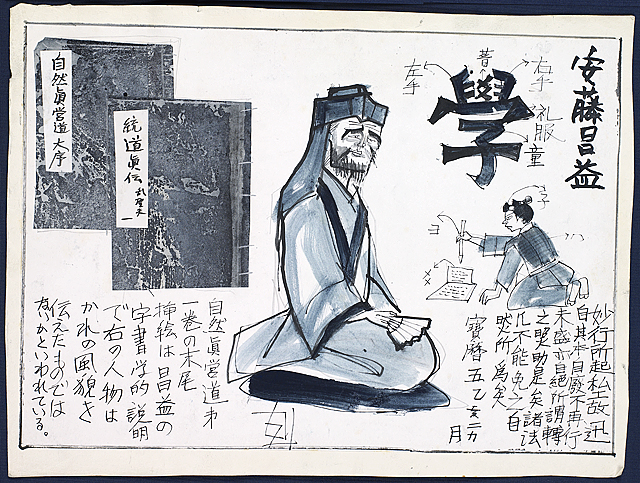 安藤昌益
昔
右手
左手
學
礼服
童
子
ヨ
ハ
メメ
妙行所起私
自其本自廢不再行
未盛亦自絶所謂轉
之 助是矣諸法
不能免 自
然所為矣
寶暦五乙亥二カ月
統道眞伝 糺聖失 一
自然眞營道 大序
自然眞營道第
一巻の末尾
挿絵は昌益の
字書学的説明
で右の人物は
かれの風貌を
伝えたものでは
ないかといわれている。